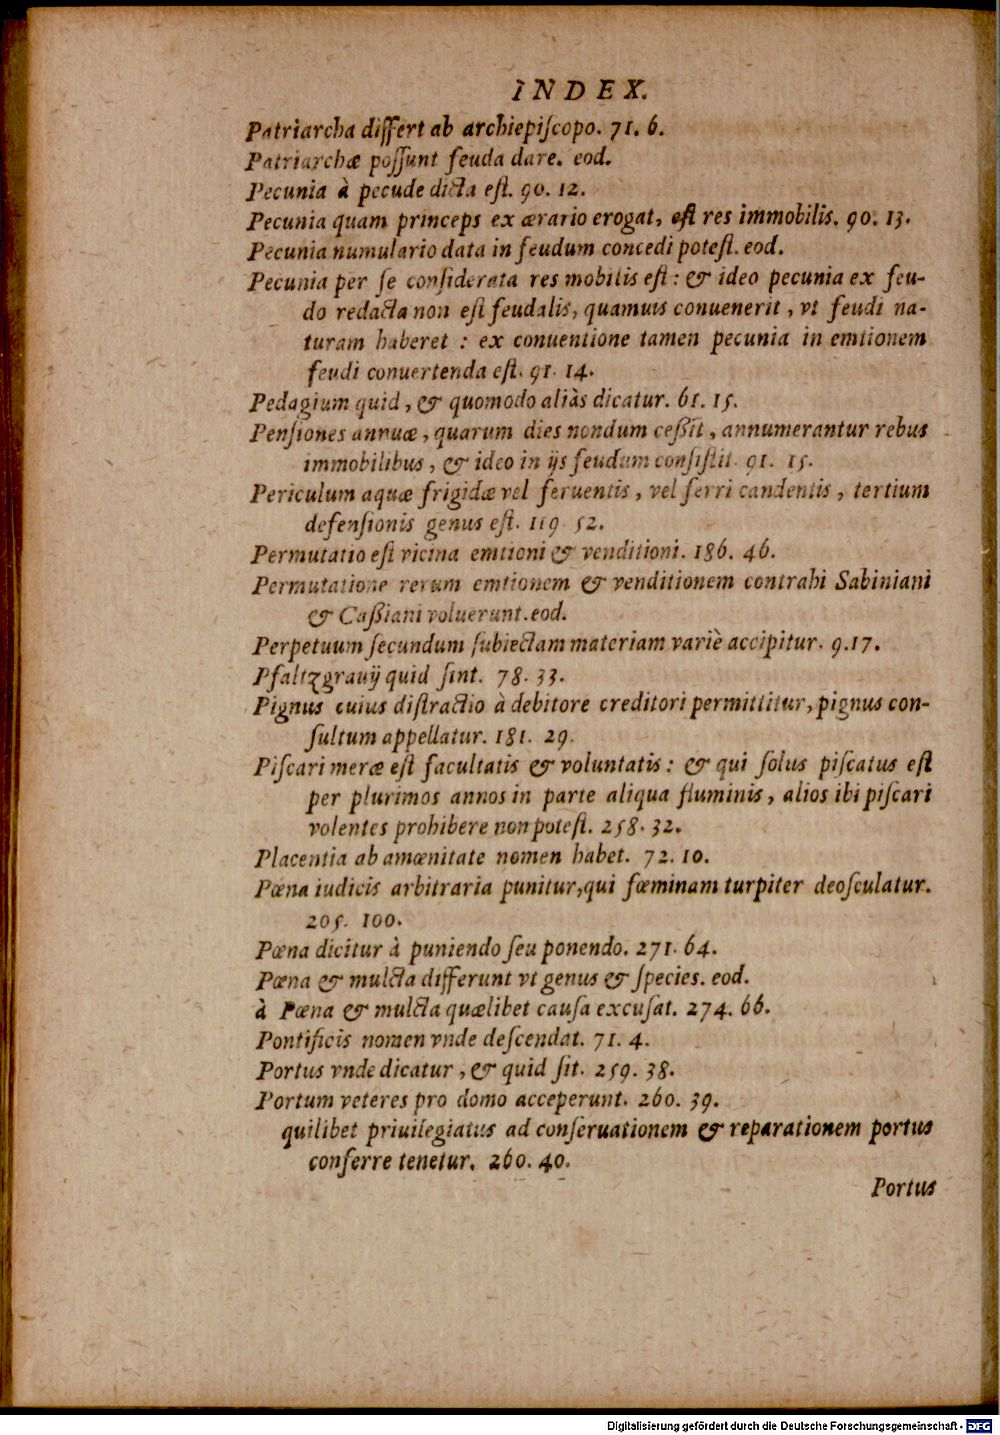 INDEX.
Patriarcha differt ab archiepiſcopo. 71. 6.
Patriarchæ poſſunt feuda dare. eod.
Pecunia à pecude dicta eſt. 90. 12.
Pecunia quam princeps ex ærario erogat, eſt res immobilis. 90. 13.
Pecunia numulario data in feudum concedi poteſt. eod.
Pecunia per ſe conſiderata res mobilis eſt : & ideo pecunia ex feu-
do redacta non eſt feudalis, quamuis conuenerit, vt feudi na-
turam haberet : ex conuentione tamen pecunia in emtionem
feudi conuertenda eſt. 91. 14.
Pedagium quid, & quomodo aliàs dicatur. 61. 15.
Penſiones annuæ, quarum dies nondum ceßit, annumerantur rebus
immobilibus, & ideo in ijs feudum conſiſtit. 91. 15.
Periculum aquæ frigidæ vel feruentis, vel ferri candentis, tertium
defenſionis genus eſt. 119. 52.
Permutatio eſt vicina emtioni & venditioni. 186. 46.
Permutatione rerum emtionem & venditionem contrahi Sabiniani
& Caßiani voluerunt. eod.
Perpetuum ſecundum ſubiectam materiam variè accipitur. 9. 17.
Pfaltzgrauij quid ſint. 78. 33.
Pignus cuius diſtractio à debitore creditori permittitur, pignus con-
ſultum appellatur. 181. 29.
Piſcari meræ eſt facultatis & voluntatis : & qui ſolus piſcatus eſt
per plurimos annos in parte aliqua fluminis, alios ibi piſcari
volentes prohibere non poteſt. 258. 32.
Placentia ab amœnitate nomen habet. 72. 10.
Pœna iudicis arbitraria punitur, qui fœminam turpiter deoſculatur.
205. 100.
Pœna dicitur à puniendo ſeu ponendo. 271. 64.
Pœna & mulcta differunt vt genus & ſpecies. eod.
à Pœna & mulcta quælibet cauſa excuſat. 274. 66.
Pontificis nomen vnde deſcendat. 71. 4.
Portus vnde dicatur, & quid ſit. 259. 38.
Portum veteres pro domo acceperunt. 260. 39.
quilibet priuilegiatus ad conſeruationem & reparationem portus
conferre tenetur. 260. 40.
Portus
Digitalisierung gefördert durch die Deutsche Forschungsgemeinschaft - DFG